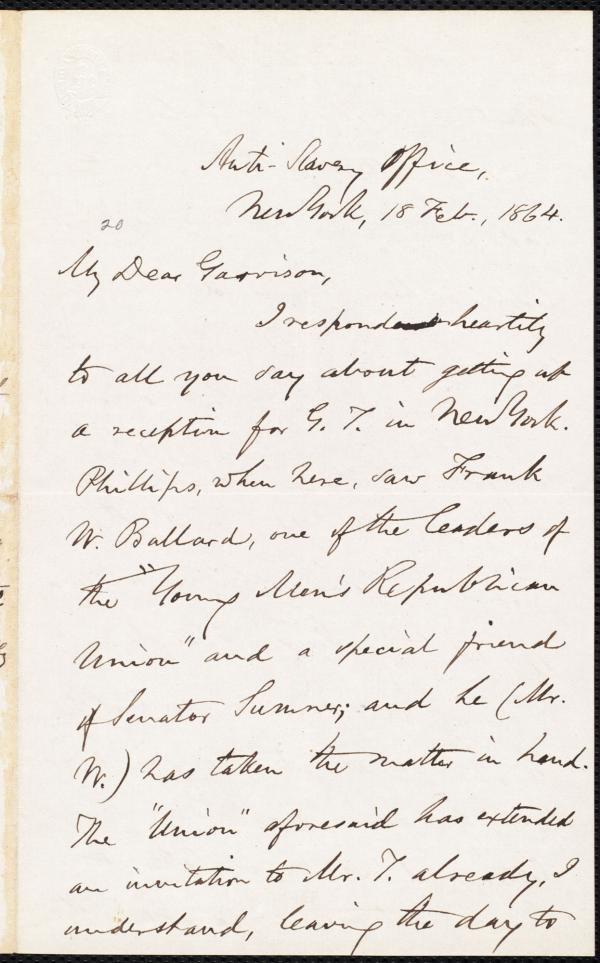 Anti-Slavery Office,
New York, 18 Feb., 1864.
20
My Dear Garrison,
I respond heartily
to all you say about getting up
a reception for G. T. in New York.
Phillips, when here, saw Frank
W. Ballard, one of the leaders of
the "Young Men's Republican
Union" and a special friend
of Senator Sumner; and he (Mr.
W.) has taken the matter in hand.
The "Union" aforesaid has extended
an invitation to Mr. T. already, I
understand, leaving the day to